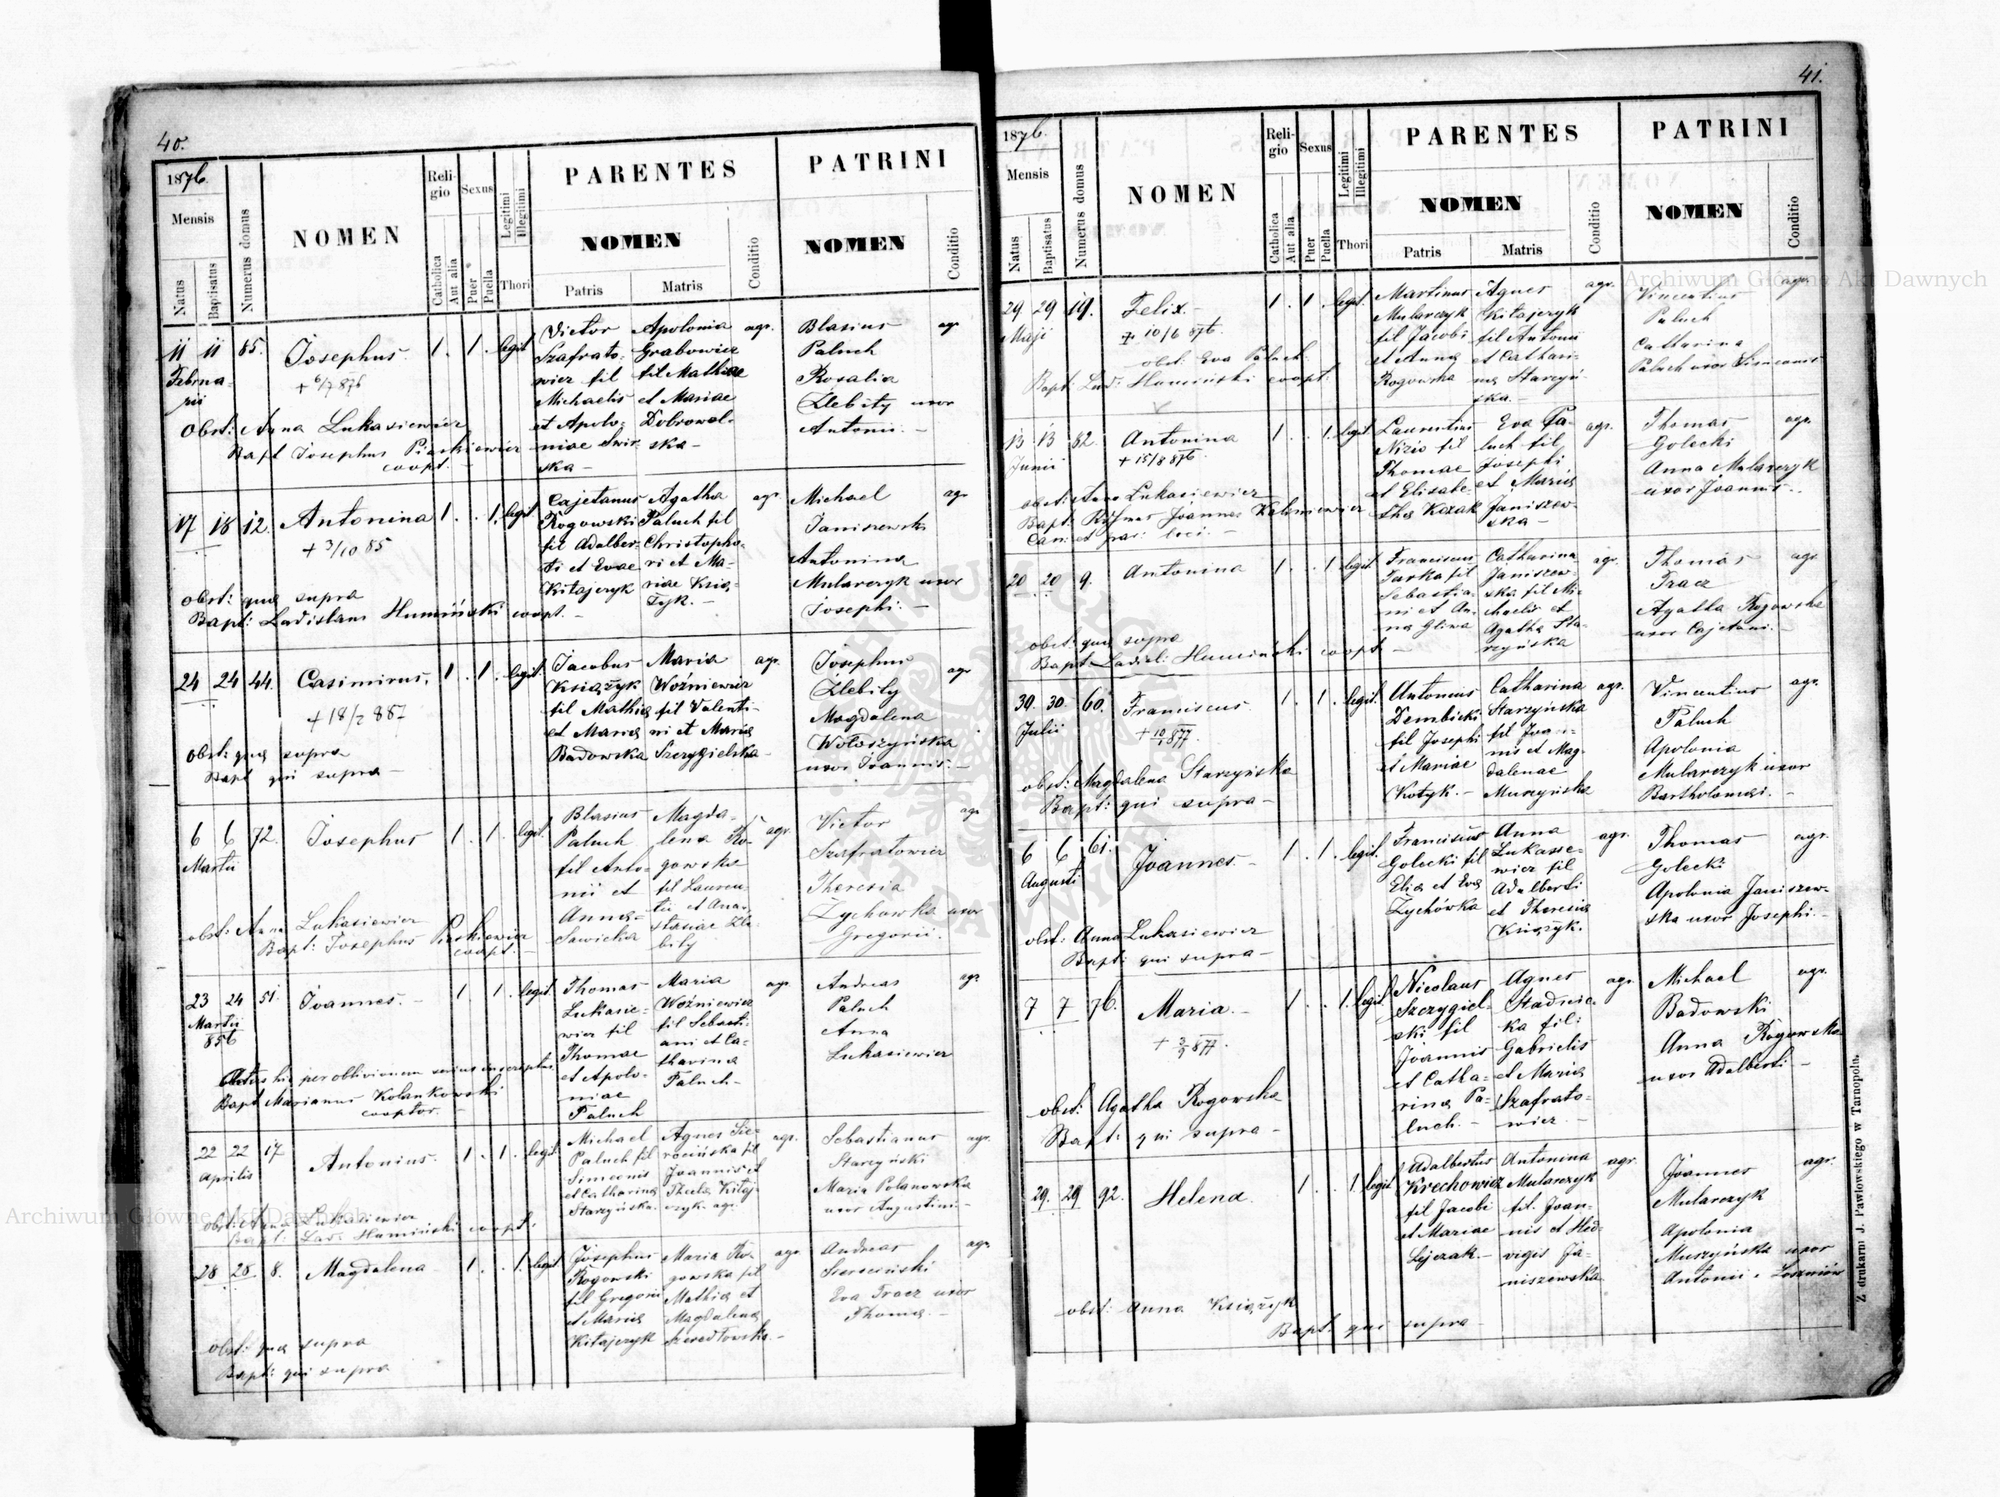 40.
1876.
Mensis
Natus
Baptisatus
Numerus domus
NOMEN
Religio
Catholica
Aut alia
Sexus
Puer
Puella
Legitimi
Illegitimi
Thori
PARENTES
NOMEN
Patris
Matris
Conditio
PATRINI
NOMEN
Conditio
11 11 85. Josephus. 1. 1. legit
Februarii
+ 6/7 876
Victor
Szafrato-
wicz fil
Michaelis
et Apolo-
niae Swir-
ska –
Apolonia
Grabowicz
fil Mathiae
et Mariae
Dobrowol-
ska –
agr.
Blasius
Paluch
Rosalia
Źlebity uxor
Antonii. –
agr
Obst: Anna Lukasiewicz
Bapt Josephus Piaskiewicz
coopt. –
17 18 12. Antonina 1. . 1. legit
+ 3/10 85
Cajetanus
Rogowski
fil Adalber-
ti et Evae
Kitajczyk
Agatha
Paluch fil
Christopho-
ri et Ma-
riae Ksią-
żyk. –
agr
Michael
Janiszewski
Antonina
Mularczyk uxor
Josephi. –
agr
obst: qua supra
Bapt: Ladislaus Humiński coopt. –
24 24 44. Casimirus. 1 . 1 . legit.
+ 18/2 887
Jacobus
Książyk
fil Mathia
et Maria
Badowska
Maria
Woźniewicz
fil Valenti-
ni et Maria
Szczygielska –
agr.
Josephus
Źlebity
Magdalena
Wołoszyńska
uxor Joannis. –
agr
obst: qua supra
Bapt qui supra –
6 6 72. Josephus 1. . 1 . legit.
Martii
Blasius
Paluch
fil Anto-
nii et
Anna
Sawicka
Magda-
lena Ro-
gowska
fil Lauren-
tii et Ana-
stasiae Źle-
bity
agr.
Victor
Szafratowicz
Theresia
Zychowka uxor
Gregorii.
agr
obst: Anna Lukasiewicz
Bapt: Josephus Piaskiewicz
coopt: –
23 24 51. Joannes. – 1. . 1 . legit
Martii
856
Thomas
Lukasie-
wicz fil
Thomae
et Apolo-
niae
Paluch
Maria
Woźniewicz
fil Sebasti-
ani et Ca-
tharina
Paluch –
agr
Andreas
Paluch
Anna
Lukasiewicz
agr
Actus hic per oblivionem serius inscriptus
Bapt Marianus Kolankowski
cooptor. –
22 22 17 Antonius. 1 . 1 . legit
Aprilis
Michael
Paluch fil
Simeonis
et Catharina
Starzyńska.
Joannis et
Thecla Kitaj-
czyk. agr.
agr.
Sebastianus
Starzyński
Maria Polanowska
uxor Augustini –
agr.
obst: Anna Lukasiewicz
Bapt: Lad: Humiński coopt:
28 28 8. Magdalena 1. . 1. legit
Josephus
Rogowski
fil Gregorii
et Maria
Kitajczyk
Maria Ro-
gowska fil
Mathia et
Magdalena
agr
Andreas
Eva Tracz uxor
Thoma. –
agr.
obst: qua supra
Bapt: qui supra
41.
1876.
Mensis
Natus
Baptisatus
Numerus domus
NOMEN
Religio
Catholica
Aut alia
Sexus
Puer
Puella
Legitimi
Illegitimi
Thori
PARENTES
NOMEN
Patris
Matris
Conditio
PATRINI
NOMEN
Conditio
29 29 19. Felix. 1. . 1 . legit.
Maji
+ 10/6 876.
Martinus
Mularczyk
fil Jacobi
et Anna
Rogowska
Agnes
Kitajczyk
fil Antonii
et Cathari-
na Starzyń-
ska. –
agr.
Vincentius
Paluch
Catharina
Paluch uxor Simeonis
agr.
obst. Eva Paluch
Bapt: Lad: Humiński coopt:
13 13 82. Antonina 1. . 1. legit
Junii
+ 15/8 876.
Laurentius
Nizio fil
Thomae
et Elisabe-
tha Kozak
Eva Pa-
luch fil
Josephi
et Maria
Janiszew-
ska –
agr.
Thomas
Golecki
Anna Mularczyk
uxor Joannis –
agr.
obst: Anna Lukasiewicz
Bapt: Joannes Kaleniewicz
loci. –
20 20 9. Antonina 1. . 1 legit
Franciscus
Turka fil
Sebastia-
ni et An-
na Gliwa
Catharina
Janiszew-
ska fil Mi-
chaelis et
Agatha Sta-
rzyńska
agr.
Thomas
Tracz
Agatha Rogowska
uxor Cajetani. –
agr.
obst: qua supra
Bapt Ladisl: Humiński coopt: –
30. 30. 60. Franciscus 1 . 1. legit.
Julii
+ 10/1 877.
Antonius
Dembicki
fil Josephi
et Mariae
Kotyk. –
Catharina
Starzyńska
fil Joan-
nis et Mag-
dalenae
Muszyńska
agr.
Vincentius
Paluch
Apolonia
Mularczyk uxor
Bartholomei. –
agr.
obst: Magdalena Starzyńska
Bapt: qui supra –
6 6 61. Joannes. – 1. . 1. . legit.
Augusti
Franciscus
Golecki fil
Elia et Eva
Zychówka
Anna
Lukasse-
wicz fil
Adalberti
et Theresia
Książyk.
agr.
Thomas
Golecki
Apolonia Janiszew-
ska uxor Josephi –
agr.
obst: Anna Lukasiewicz
Bapt: qui supra –
7 7 76. Maria. – 1. . 1. legit
877.
Nicolaus
Szczygiel-
ski fil
Joannis
et Catha-
rina Pa-
luch. –
Agnes
Stadnic-
ka fil:
Gabrielis
et Maria
Szafrato-
wicz –
agr.
Michael
Badowski
Anna Rogowska
uxor Adalberti –
agr.
obst: Agatha Rogowska
Bapt: qui supra –
29. 29 92. Helena. 1 . 1 legit
Adalbertus
Krechowicz
fil Jacobi
et Mariae
Lejczak. –
Antonina
Mularczyk
fil. Joan-
nis et Hed-
vigis Ja-
niszewska
agr.
Joannes
Mularczyk
Apolonia
Muszyńska uxor
Antonii.
agr.
obst: Anna Książyk
Bapt: qui supra –
Z drukarni J. Pawłowskiego w Tarnopolu.
Archiwum Główne Akt Dawnych
Archiwum Główne Akt Dawnych